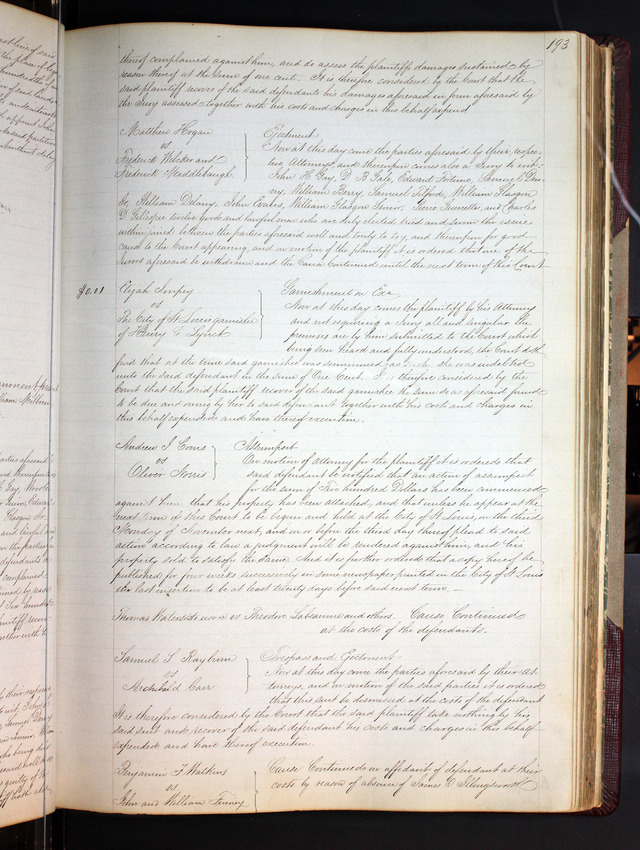 193
thereof complained against him, and do assess the plaintiffs damages sustained by
reason thereof at the sum of one cent. It is therefore considered by the Court that the
said plaintiff recover of the said defendants his damages aforesaid in form aforesaid by
the Jury assessed together with his costs and charges in this behalf expend
Matthew Hogan
vs
Frederick and
Frederick Middlebaugh
Ejectment
Now at this day come the parties aforesaid by their respec-
tive Attorneys, and thereupon comes also a Jury to wit:
John H Gay, D. B Gale, Edward Henry C
William Berry, Samuel Alford, William Glasgow
Jr, William Delany, John Evans, William Glasgow Senior, and Charles
D Gillespie twelve good and lawful men who are duly elected tried and sworn the issue
within joined between the parties aforesaid well and truly to try, and thereupon for good
cause to the Court appearing, and on motion of the plaintiff it is ordered that one of the
Jurors aforesaid be withdrawn and the Cause Continued until the next term of this Court
$0.01
Elijah
vs
The City of St Louis garnishee
of Henry C Lynch
Garnishment on Exn
Now at this day comes the plaintiff by his Attorney
and not requiring a Jury all and singular the
premises are by him submitted to the Court which
being seen heard and fully understood, the Court doth
find that at the time said garnishee was summoned as such, she was indebted
unto the said defendant in the sum of One Cent. It is therefore considered by the
Court that the said plaintiff recover of the said garnishee the sum so as aforesaid found
to be due and owing by her to said defendant together with his costs and charges in
this behalf expended and have thereof execution.
Andrew J
vs
Oliver Norris
Assumpsit
On motion of Attorney for the plaintiff it is ordered that
said defendant be notified that an action of assumpsit
in the sum of Five hundred Dollars has been commenced
against him, that his property has been attached, and that unless he appear at the
next term of this Court to be begun and held at the City of St Louis, on the third
Monday of November next, and on or before the third day thereof plead to said
action according to law a judgment will be rendered against him, and his
property sold to satisfy the same. And it is further ordered that a copy hereof be
published for four weeks successively in some newspaper printed in the City of St Louis
the last insertion to be at least twenty days before said next term. —
Thomas vs Theodore Labaume and others. Cause Continued
at the costs of the defendants.
Samuel S Rayburn
vs
Archibald Carr
Trespass and Ejectment
Now at this day come the parties aforesaid by their at-
torneys, and on motion of the said parties it is ordered
that this suit be dismissed at the costs of the defendant
It is therefore considered by the Court that the said plaintiff take nothing by his
said suit and recover of the said defendant his costs and charges in this behalf
expended and have thereof execution.
Benjamin F Watkins
vs
John and William Finney
Cause Continued on affidavit of defendant at their
costs by reason of absence of James C